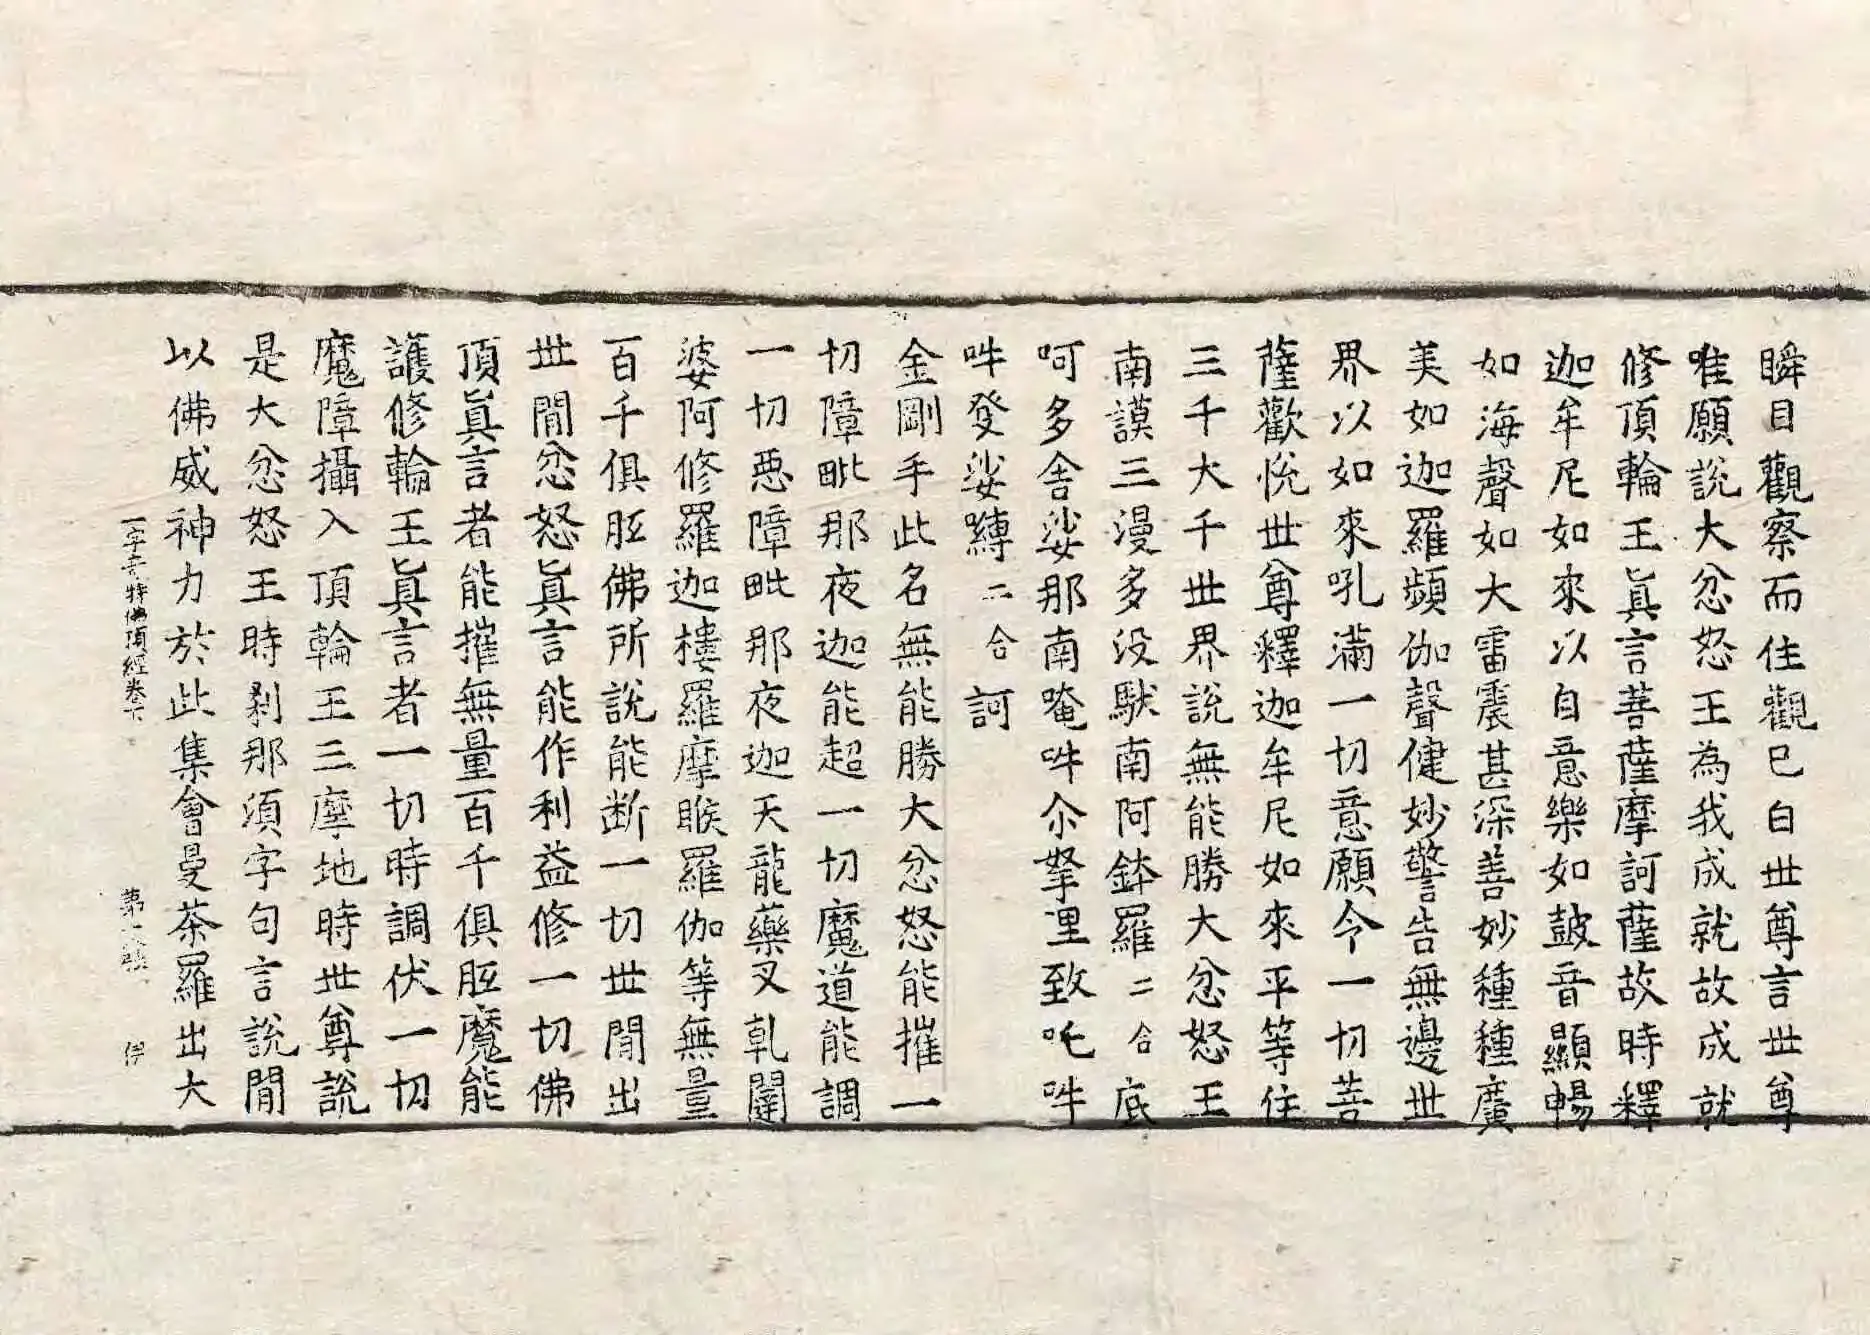 瞬目觀察而住觀已白世尊言世尊
唯願說大忿怒王為我成就故成就
修頂輪王眞言菩薩摩訶薩故時釋
迦牟尼如來以自意樂如鼓音顯暢
如海聲如大雷震甚深善妙種種廣
美如迦羅頻伽聲健妙警告無邊世
界以如來吼滿一切意願令一切菩
薩歡悅世尊釋迦牟尼如來平等住
三千大千世界說無能勝大忿怒王
南謨三漫多没馱南阿鉢羅二合底
呵多舍娑那南唵吽尒拏里致吒吽
吽發娑嚩二合訶
金剛手此名無能勝大忿怒能摧一
切障毗那夜迦能超一切魔道能調
一切惡障毗那夜迦天龍藥叉乹闥
婆阿修羅迦樓羅摩睺羅伽等無量
百千俱胝佛所說能断一切世閒出
世閒忿怒眞言能作利益修一切佛
頂眞言者能摧無量百千俱胝魔能
護修輪王眞言者一切時調伏一切
魔障攝入頂輪王三摩地時世尊說
是大忿怒王時剎那須字句言說閒
以佛威神力於此集會曼荼羅出大
一字奇特佛頂經卷下 第 張